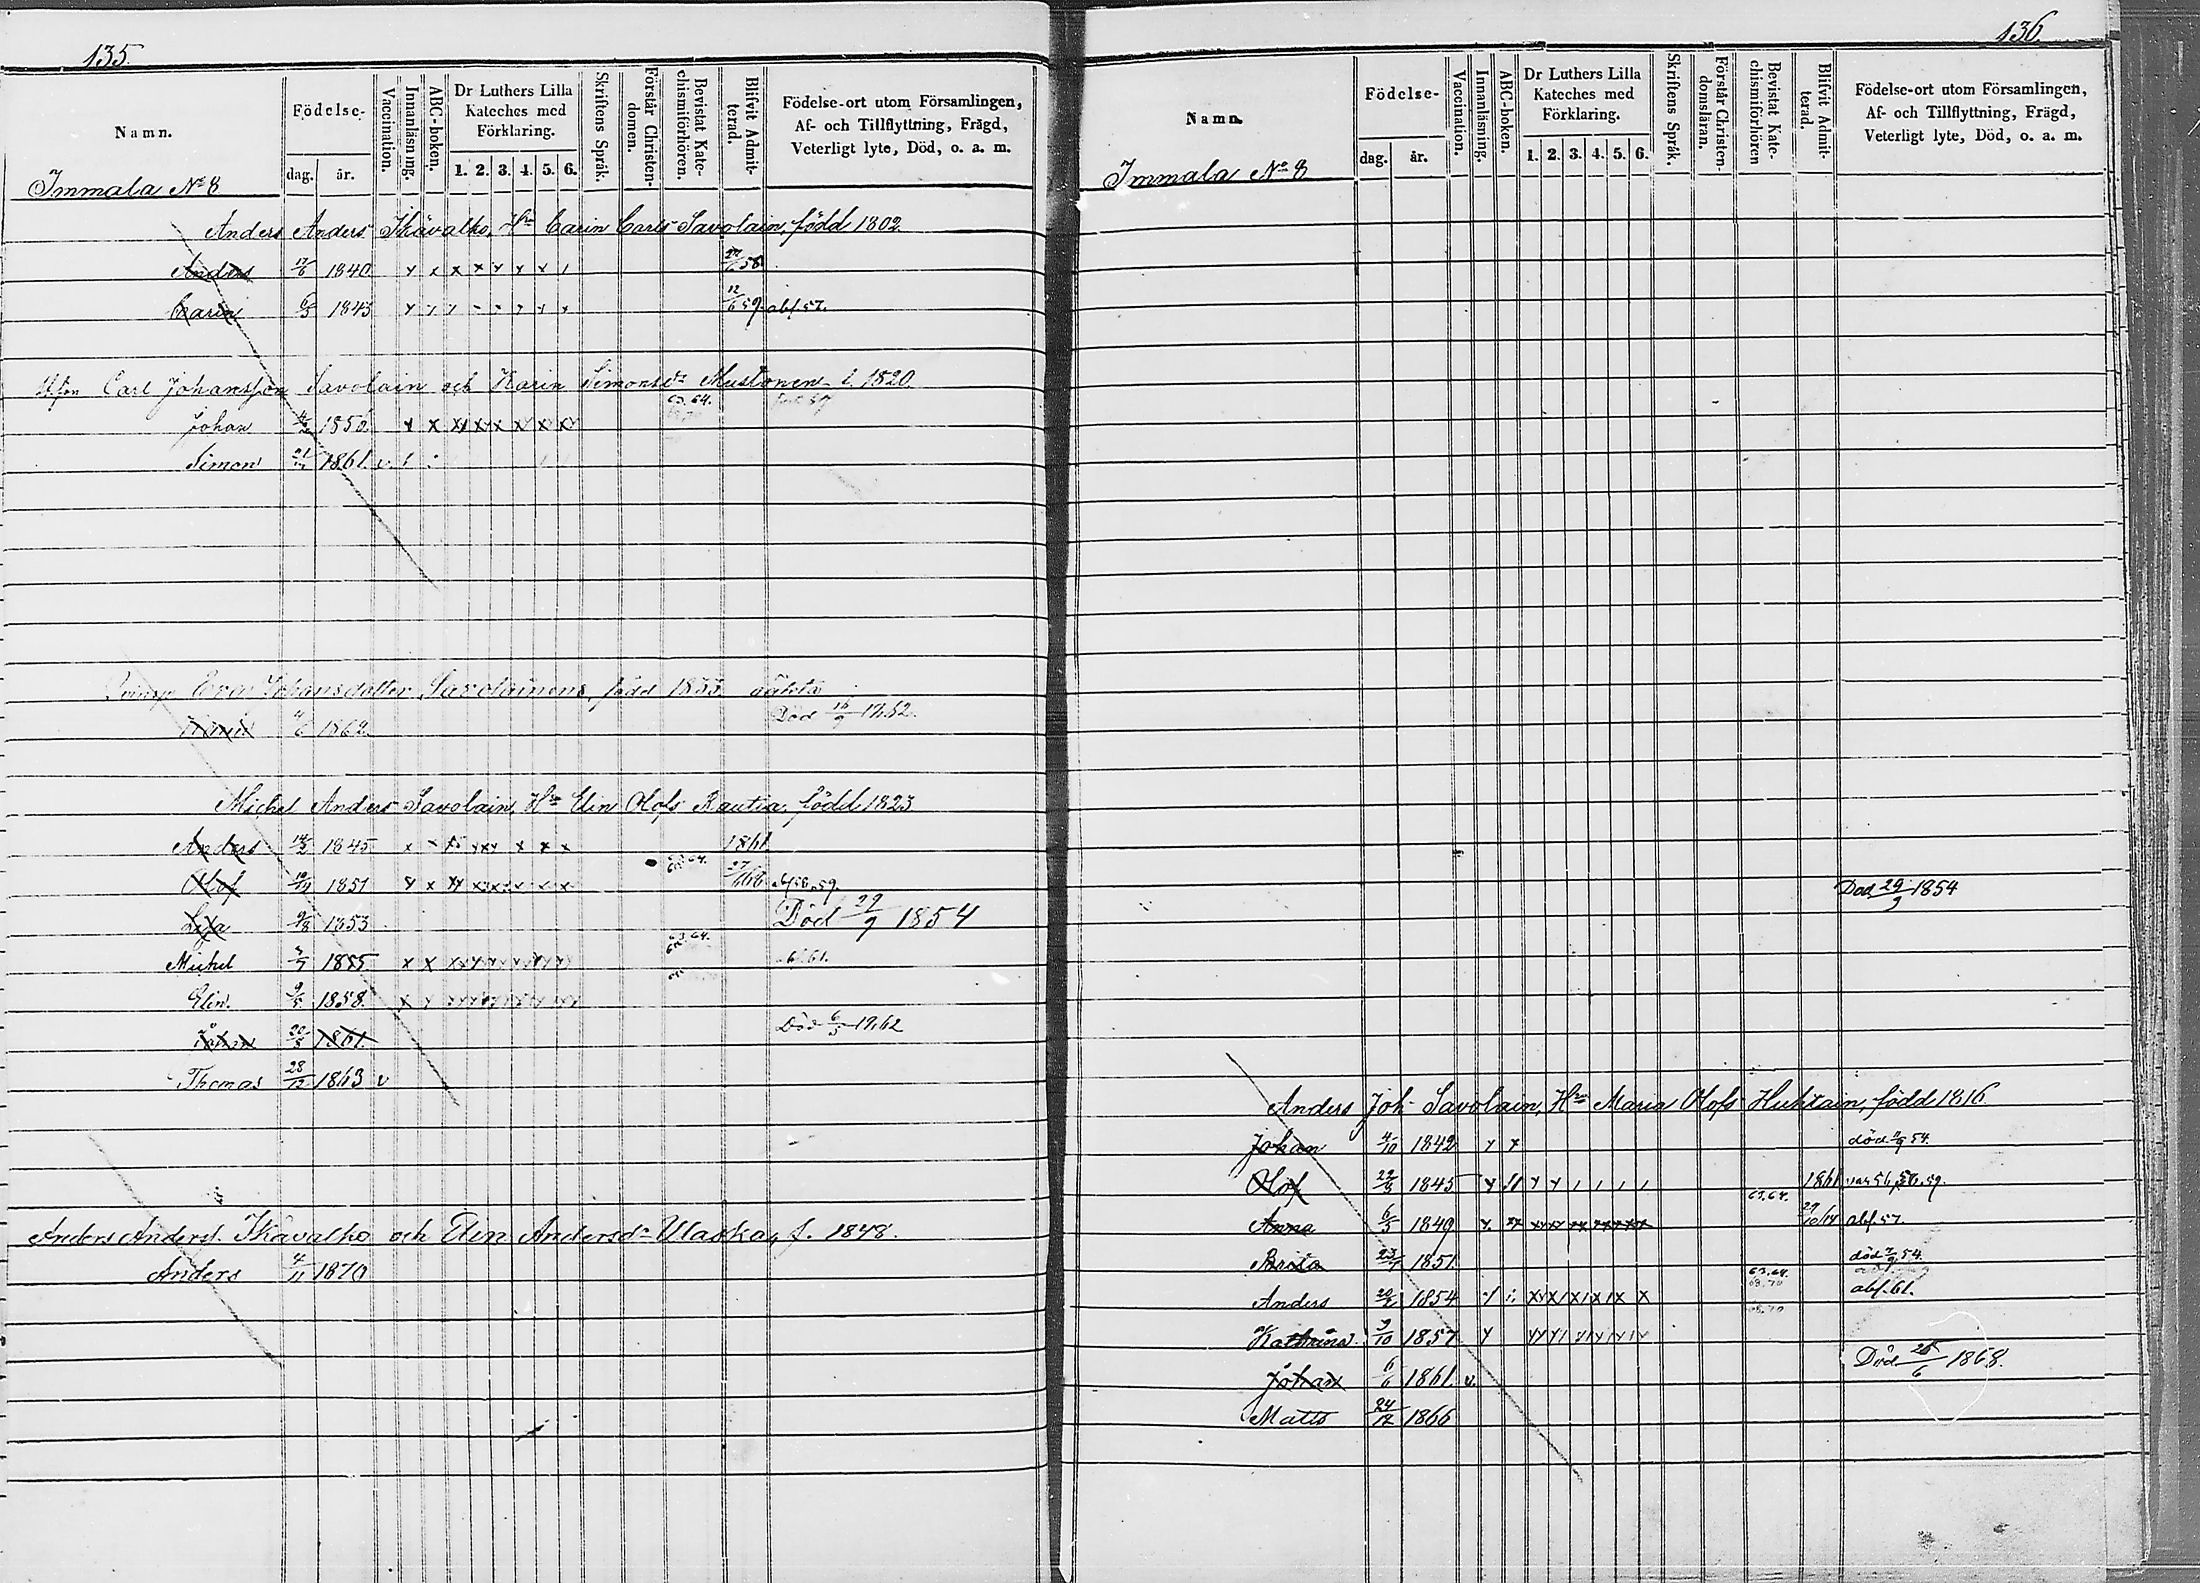 135.
Namn.
Födelse-
dag.
år.
Vaccination.
Innanläsning.
ABC-boken.
Dr Luthers Lilla
Kateches med
Förklaring.
1. 2. 3. 4. 5. 6.
Skriftens Språk.
Förstår Christen-
domen.
Bevistat Kate-
chismiförhören.
Blifvit Admit-
terad.
Födelse-ort utom Församlingen,
Af- och Tillflyttning, Frägd,
Veterligt lyte, Död, o. a. m.
Immala No 8
Anders Anders Ikävalko, Hu Carin Carls Savolain, född 1802
Anders 17/6 1840 58
Carin 6/5 1843 12/6 59 abs. 57.
Carl Johansson Savolain och Karin Simonsdr Mustonen f. 1820
63. 64.
Johan 1850
Simon 1861 v
Eva Johansdotter Savolainen, född 1833
1862 Död 16/9 1862
Michel Anders Savolain, Hu Elin Olofs Rautia, född 1823
Anders 1845 1861
63. 64.
Olof 1851 59.
Liza 9/8 1853 Död 29/9 1854
63. 64.
Michel 1855 61.
Elin 9/5 1858
Johan 20/8 1861 Död 6/5 1862
Thomas 28/12 1863 v
Anders Anders. Ikävalko och Elin Andersdr Ulaska, f. 1848.
Anders 4/11 1870
136
Namn.
Födelse-
dag.
år.
Vaccination.
Innanläsning.
ABC-boken.
Dr Luthers Lilla
Kateches med
Förklaring.
1. 2. 3. 4. 5. 6.
Skriftens Språk.
Förstår Christen-
domsläran.
Bevistat Kate-
chismiförhören
Blifvit Admit-
terad.
Födelse-ort utom Församlingen,
Af- och Tillflyttning, Frägd,
Veterligt lyte, Död, o. a. m.
Immala No 8
Död 29/9 1854
Anders Joh Savolain, Hu Maria Olofs Huhtain, född 1816
Johan 4/10 1842 död 54.
Olof 1845 1861 var 56, 58. 59.
63. 64.
Anna 6/5 1849 abs. 57.
Brita 23/7 1851 död 54.
63. 64.
68. 70
Anders 1854 abs. 61.
Kathrina 3/10 1857
Johan 6/6 1861 v. Död 26/6 1868.
Matts 24/12 1866